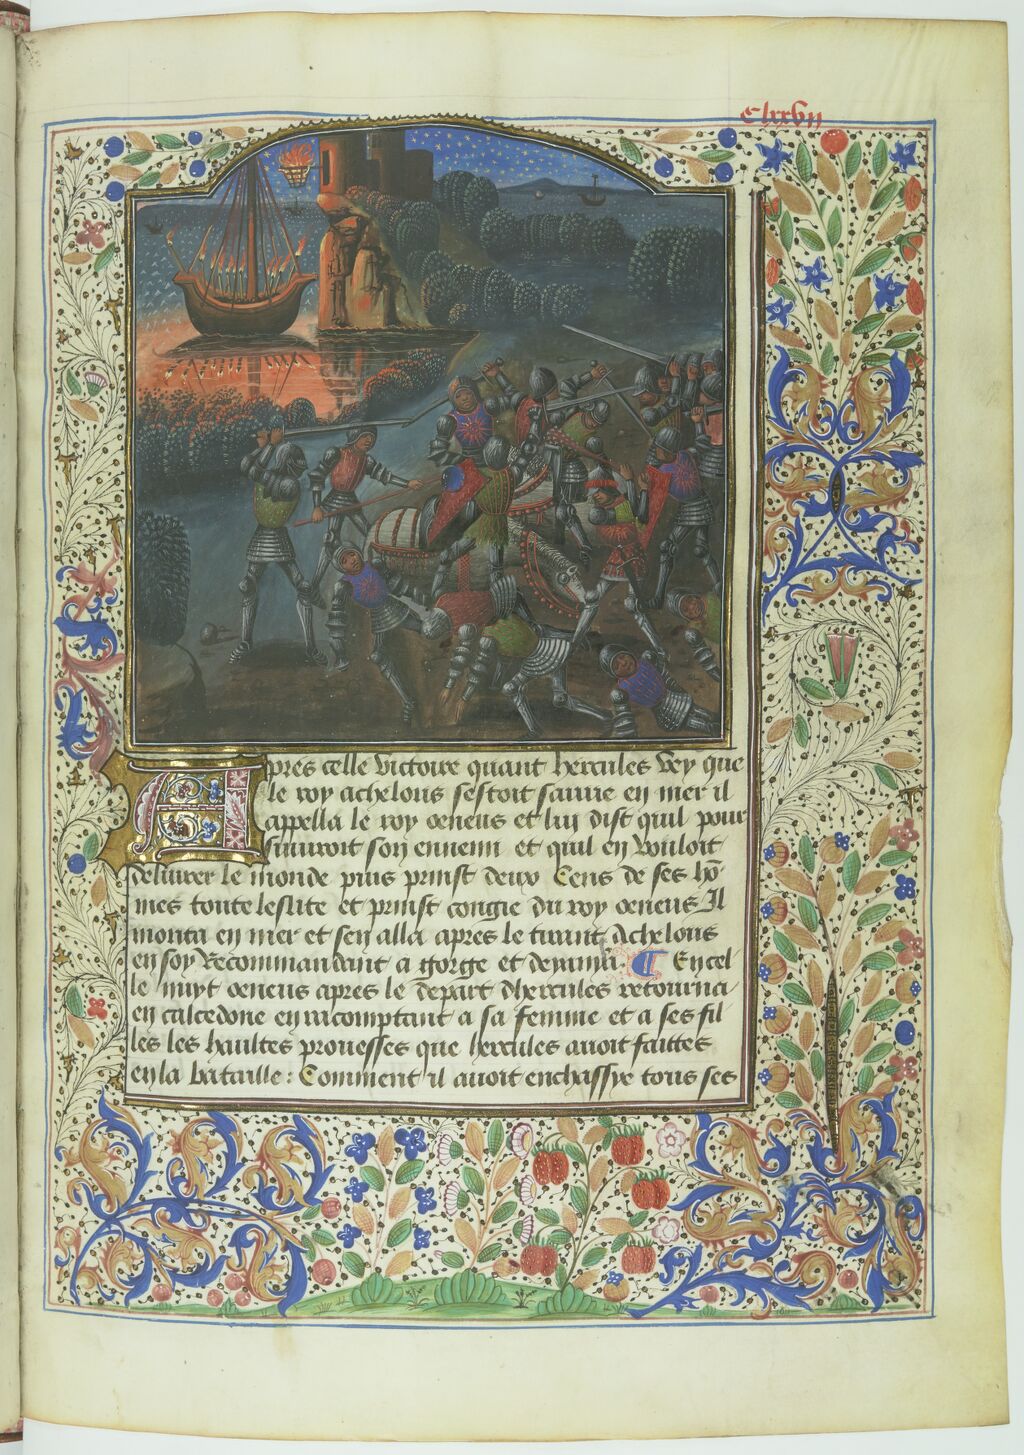 Clxxvii
Apres celle victoire quant hercules vey que
le roy achelous sestoit sauue en mer il
appella le roy oeneus et lui dist quil pour
suiuroit son ennemi et quil en vouloit
deliurer le monde puis prinst deux Cens de ses hō
mes toute leslite et prinst congie du roy oeneus Il
monta en mer et sen alla apres le tirant Achelous
en soy Recommandant a gorge et deyanira En cel
le nuyt oeneus apres le depart dhercules retourna
en calcedone en racomptant a sa femme et a ses fil
les les haultes prouesses que hercules auoit faittes
en la bataille : Comment il auoit enchassye tous ses